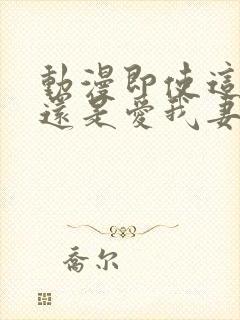 動漫即使這
還是愛我妻
喬尔